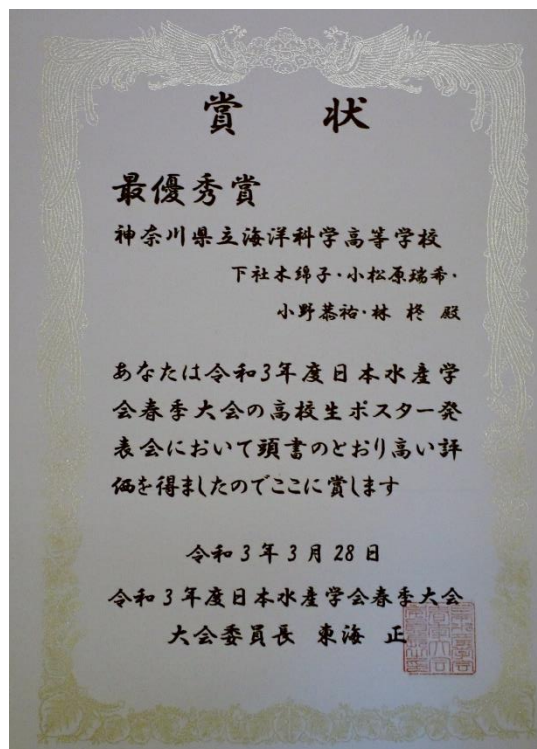 賞 状
最優秀賞
神奈川県立海洋科学高等学校
下社木綿子・小松原瑞希・
小野恭祐・林 柊 殿
あなたは令和3年度日本水産学
会春季大会の高校生ポスター発
表会において頭書のとおり高い評
価を得ましたのでここに賞します
令和3年3月28日
令和3年度日本水産学会春季大会
大会委員長 東海 正